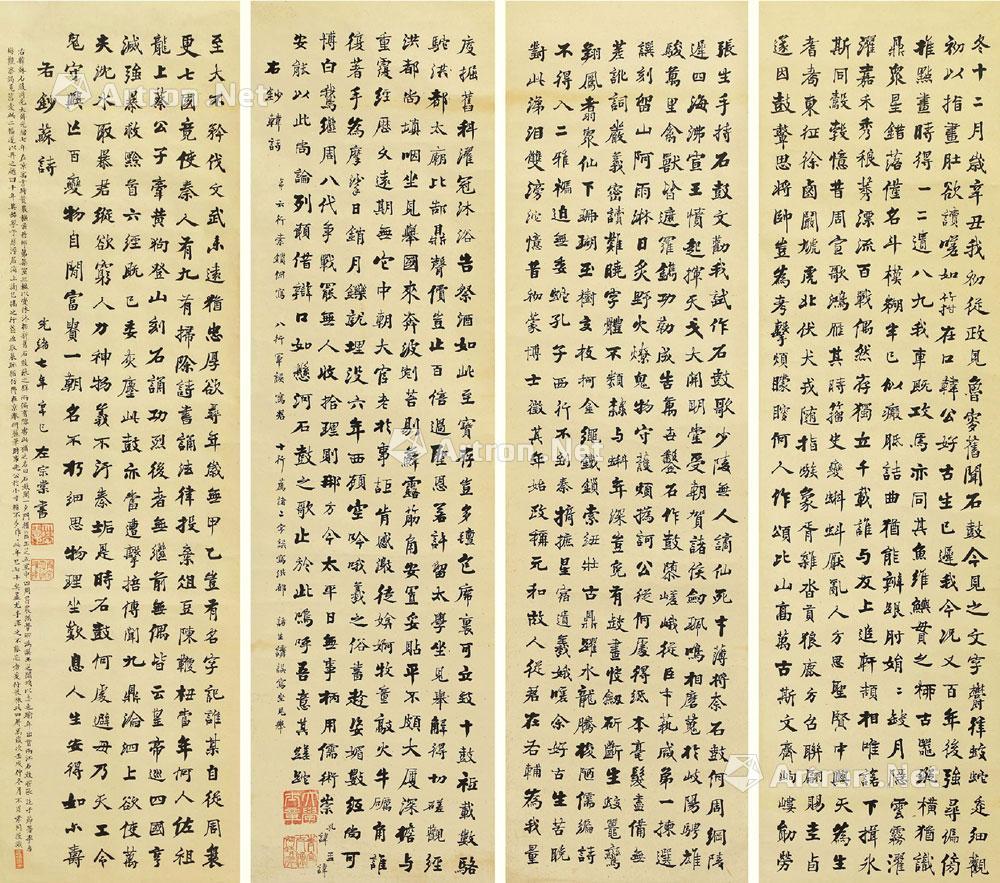 冬十二月歲辛丑我初從政見魯叟舊聞石鼓今見之文字鬱律蛟蛇走細觀
初以指畫肚欲讀嗟如箝在口韓公好古生已遲我今況又百年後強尋偏傍
推點畫時得一二遺八九我車既攻馬亦同其魚維鱮貫之柳古器縱橫猶識
鼎眾星錯落僅名斗模糊半已似瘢胝詰曲猶能辨跟肘娟〻缺月隱雲霧濯
濯嘉禾秀稂莠漂流百戰偶然存獨立千載誰與友上追軒頡相唯諾下揖冰
斯同鷇憶昔周宣歌鴻雁其時籀史變蝌蚪厭亂人方思聖賢中興天為生
耆耇東征徐虜闞虓虎北伏犬戎隨指嗾象胥雜沓貢狼鹿方召聯翩賜圭卣
遂因鼓鼙思將帥豈為考擊煩矇瞍何人作頌比嵩高萬古斯文齊岣嶁勛勞
張生手持石鼓文勸我試作石鼓歌少陵無人謫仙死才薄將奈石鼓何周綱陵
遲四海沸宣王憤起揮天戈大開明堂受朝賀諸侯劍佩鳴相磨蒐於岐陽騁雄
駿萬里禽獸皆遮羅鐫功勒成告萬世鑿石作鼓隳嵯峨從臣才藝咸第一揀選
譔刻留山阿雨淋日炙野火燎鬼物守護煩撝訶公從何處得紙本毫髮盡備無
差訛詞嚴義密讀難曉字體不類隸與蝌年深豈免有缺畫快劍斫斷生蛟鼉鸞
翔鳳翥眾仙下珊瑚玉樹交枝柯金繩鐵鎖索紐壯古鼎躍水龍騰梭陋儒編詩
不得入二雅褊迫無委蛇孔子西行不到秦掎摭星宿遺羲娥嗟余好古生苦晚
對此涕泪雙滂沱憶昔初蒙博士徵其年始改稱元和故人從軍在右輔為我量
度掘舊科濯冠沐浴告祭酒如此至寶存豈多氈包席裹可立致十鼓祗載數駱
駝洪都太廟比郜鼎聲價豈止百倍過聖恩若許留太學坐見舉解得切磋觀經
洪都尚填咽坐見舉國來奔波剜苔剔蘚露節角安置妥貼平不頗大廈深檐與
重覆經歷久遠期無它中朝大官老於事詎肯感激徒媕婀牧童敲火牛礪角誰
復著手為摩挲日銷月鑠就埋沒六年西顧空吟哦羲之俗書趁姿媚數紙尚可
博白鵝繼周八代爭戰罷無人收拾理則那方今太平日無事柄用儒術崇
安能以此尚論列願借辯口如懸河石鼓之歌止於此嗚呼吾意其蹉跎
右鈔韓詩
至大不矜伐文武未遠猶忠厚欲尋年歲無甲乙豈有名字記誰某自從周衰
更七國竟使秦人有九有掃除詩書誦法律投棄俎豆陳鞭杻當年何人佐祖
龍上蔡公子牽黃狗登山刻石誦功烈後者無繼前無偶皆云皇帝巡四國烹
滅強暴救黔首六經既已委灰塵此鼓亦當遭擊掊傳聞九鼎淪泗上欲使萬
夫沈水取暴君縱欲窮人力神物義不汙秦垢是時石鼓何處避毋乃天工令
鬼守興亡百變物自閒富貴一朝名不朽細思物理坐歎息人生安得如爾壽
右鈔蘇詩
光緒七年辛巳 左宗棠書
Artron.Net